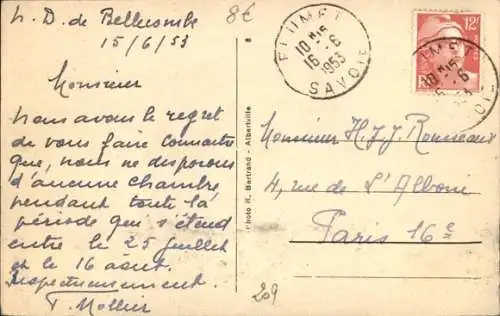 N. D. de Bellecombe
15/6/53
8€
Monsieur
Nous avons le regret
de vous faire connaître
que, nous ne disposons
d'aucune chambre
pendant toute la
période que s'étend
entre le 25 juillet
et le 16 août.
Respectueusement.
P. Mollier
Photo R. Bertrand - Albertville
FLUMET
10 H 15
16-6
1953
SAVOIE
12F
10 H 15
Monsieur H. J. J. Rousseaux
4, rue de L'Alboni
Paris 16e
209